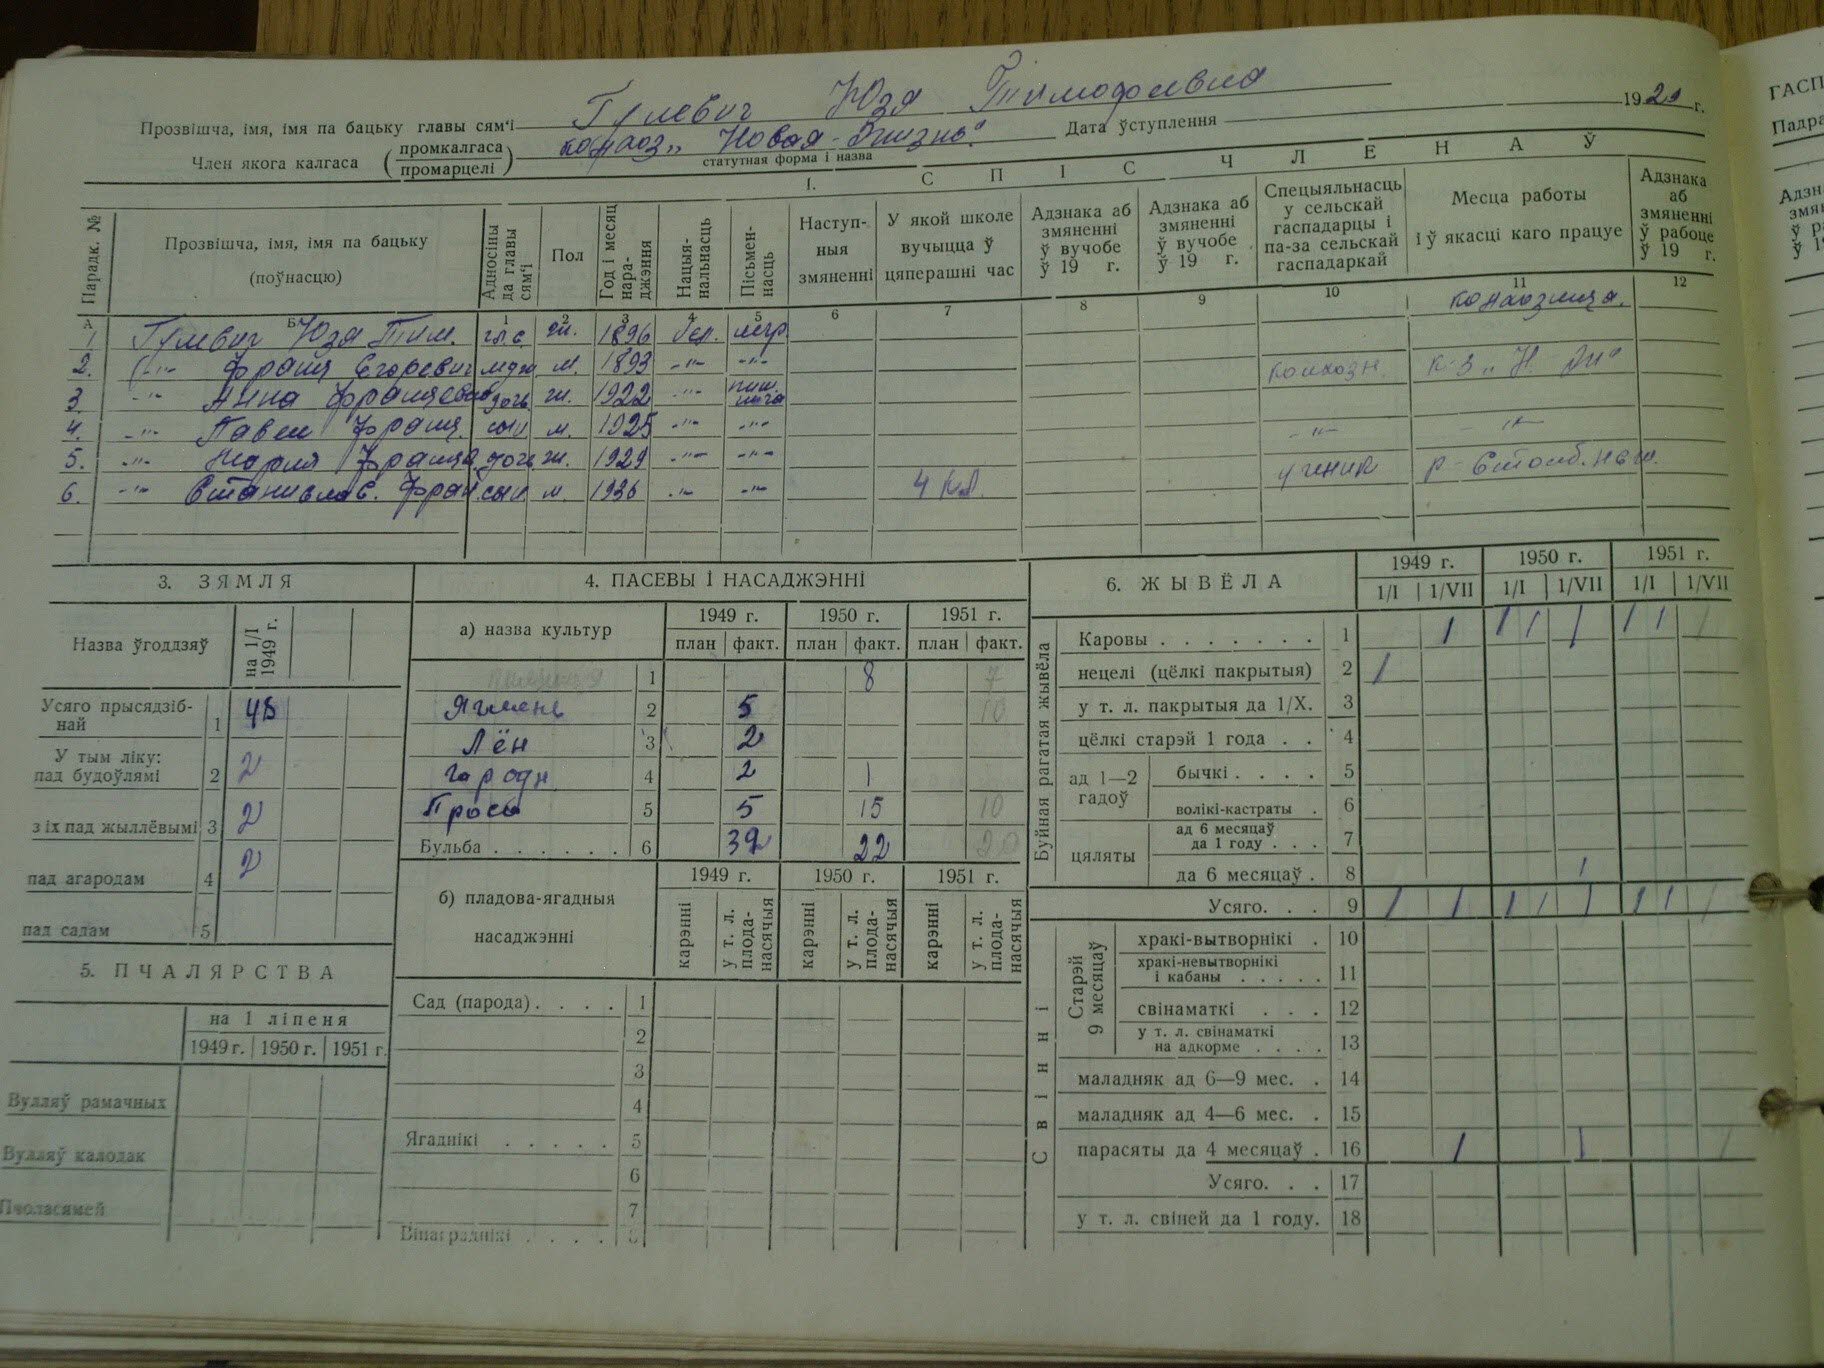 Гулевич Юзя Тимофеевна
Прозвішча, імя, імя па бацьку главы сям'і
Дата ўступлення 1929 г.
Член якога калгаса (промкалгаса / промарцелі) колхоз „Новая Жизнь"
статутная форма і назва
1. СПІС ЧЛЕНАЎ
Парадк. №
Прозвішча, імя, імя па бацьку (поўнасцю)
Адносіны да главы сям'і
Пол
Год і месяц нараджэння
Нацыянальнасць
Пісьменнасць
Наступныя змяненні
У якой школе вучыцца ў цяперашні час
Адзнака аб змяненні ў вучобе ў 19 г.
Адзнака аб змяненні ў вучобе ў 19 г.
Спецыяльнасць у сельскай гаспадарцы і па-за сельскай гаспадаркай
Месца работы і ў якасці каго працуе
Адзнака аб змяненні ў рабоце ў 19 г.
А Б 1 2 3 4 5 6 7 8 9 10 11 12
1 Гулевич Юзя Тим. гл.с. ж. 1896 бел. негр. колхозница.
2. -"- Франц Егоревич муж м. 1893 -"- -"- колхозн.
3 -"- Анна дочь ж. 1922 -"-
4. -"- Павел Франц. сын м. 1925 -"- -"- -"- -"-
5. -"- Мария дочь ж. 1929 -"- -"-
6. -"- Станислав. Фран. сын м. 1936 -"- -"- 4 кл. ученик
3. ЗЯМЛЯ
Назва ўгоддзяў на 1/I 1949 г.
Усяго прысядзібнай 1 48
У тым ліку:
пад будоўлямі 2 2
з іх пад жыллёвымі 3 2
пад агародам 4 2
пад садам 5
5. ПЧАЛЯРСТВА
на 1 ліпеня
1949 г. 1950 г. 1951 г.
Вулляў рамачных
Вулляў калодак
Пчоласямей
4. ПАСЕВЫ І НАСАДЖЭННІ
а) назва культур 1949 г. 1950 г. 1951 г.
план факт. план факт. план факт.
1 8 7
Ячмень 2 5 10
Лён 3 2
Гародн 4 2 1
Проса 5 5 15 10
Бульба . . . . . . 6 32 22 20
б) пладова-ягадныя насаджэнні
1949 г. 1950 г. 1951 г.
карэнні у т. л. плоданасячыя карэнні у т. л. плоданасячыя карэнні у т. л. плоданасячыя
Сад (парода) . . . . 1
2
3
4
Ягаднікі . . . . . 5
6
7
Вінаграднікі . . . .
6. ЖЫВЁЛА
1949 г. 1950 г. 1951 г.
1/I 1/VII 1/I 1/VII 1/I 1/VII
Буйная рагатая жывёла
Каровы . . . . . . . 1 1 1 1 1 1 1 1
нецелі (цёлкі пакрытыя) 2 1
у т. л. пакрытыя да 1/X. 3
цёлкі старэй 1 года . . 4
ад 1—2 гадоў
бычкі . . . . 5
волікі-кастраты . 6
цяляты
ад 6 месяцаў да 1 году . . . 7
да 6 месяцаў . 8 1
Усяго. . . 9 1 1 1 1 1 1 1 1
Свінні
Старэй 9 месяцаў
хракі-вытворнікі . 10
хракі-невытворнікі і кабаны . . . . . 11
свінаматкі . . . 12
у т. л. свінаматкі на адкорме . . . . 13
маладняк ад 6—9 мес. . 14
маладняк ад 4—6 мес. . 15
парасяты да 4 месяцаў . 16 1 1 1
Усяго. . . 17
у т. л. свіней да 1 году. 18